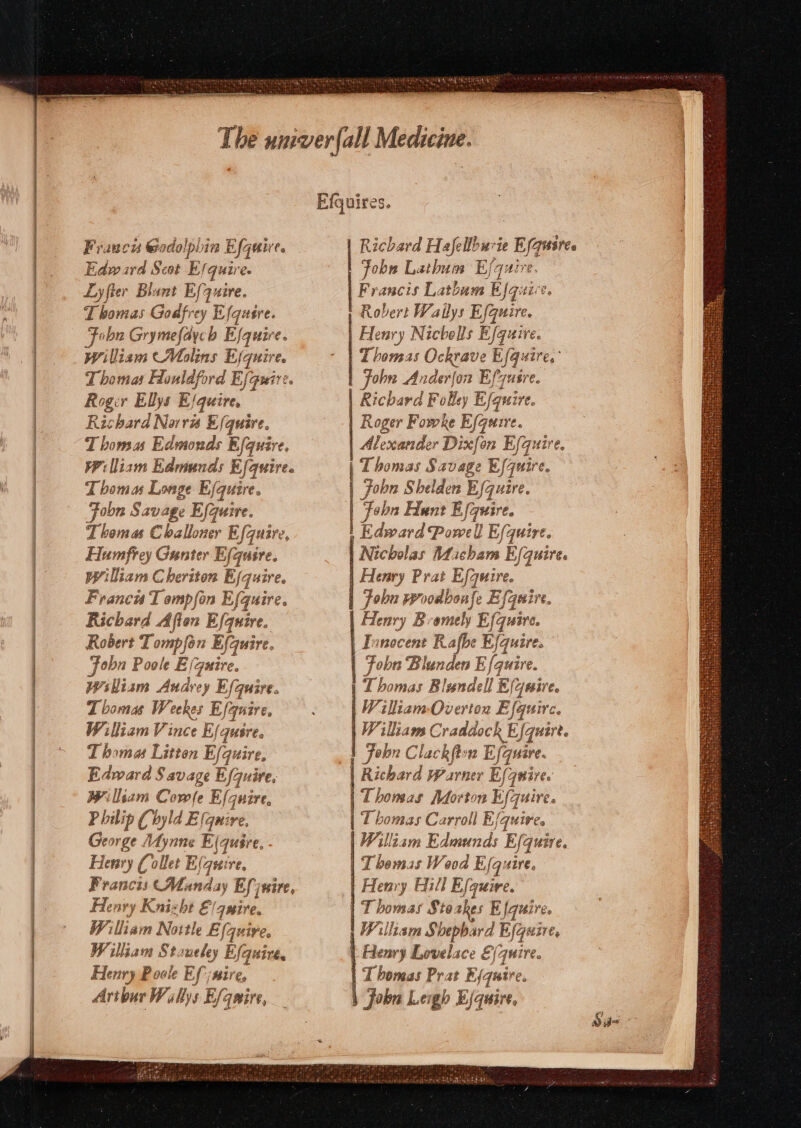 The univerſall Medicine.
Eſquires.
Francis Godolphin Eſquire.
Edward Scot Eſquire.
Lyſter Blunt Eſquire.
Thomas Godfrey Eſquire.
John Grymeſdych Eſquire.
William Molins Eſquire.
Thomas Houldford Eſquire.
Roger Ellys Eſquire,
Richard Norris Eſquire,
Thomas Edmonds Eſquire,
William Edmunds Eſquire.
Thomas Longe Eſquire.
John Savage Eſquire.
Thomas Challoner Eſquire,
Humfrey Gunter Eſquire.
William Cheriton Eſquire.
Francis Tompſon Eſquire.
Richard Aſton Eſquire.
Robert Tompſon Eſquire.
John Poole Eſquire.
William Audrey Eſquire.
Thomas Weekes Eſquire,
William Vince Eſquire.
Thomas Litten Eſquire,
Edward Savage Eſquire,
William Cowſe Eſquire,
Philip Chyld Eſquire.
George Mynne Eſquire,
Henry Collet Eſquire,
Francis Manday Eſquire,
Henry Knight Eſquire.
William Nottle Eſquire.
William Staveley Eſquire,
Henry Poole Eſquire,
Arthur Wallys Eſquire,
Richard Haſellburie Eſquire.
John Lathum Eſquire.
Francis Lathum Eſquire.
Robert Wallys Eſquire.
Henry Nicholls Eſquire.
Thomas Ockrave Eſquire,
John Anderſon Eſquire.
Richard Folley Eſquire.
Roger Fowke Eſquire.
Alexander Dixſon Eſquire.
Thomas Savage Eſquire.
John Shelden Eſquire.
John Hunt Eſquire.
Edward Powell Eſquire.
Nicholas Micham Eſquire.
Henry Prat Eſquire.
John Woodhouſe Eſquire.
Henry Bromely Eſquire.
Innocent Raſhe Eſquire.
John Blunden Eſquire.
Thomas Blundell Eſquire.
William Overton Eſquire.
William Craddock Eſquire.
John Clackſton Eſquire.
Richard Warner Eſquire.
Thomas Morton Eſquire.
Thomas Carroll Eſquire.
William Edmunds Eſquire.
Thomas Wood Eſquire.
Henry Hill Eſquire.
Thomas Stoakes Eſquire.
William Shephard Eſquire,
Henry Lovelace Eſquire.
Thomas Prat Eſquire.
John Leigh Eſquire,